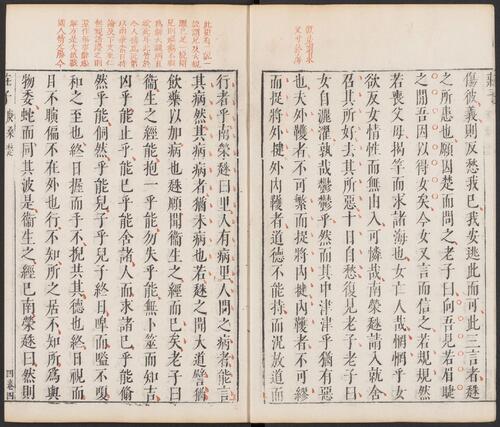 傷彼義則反愁我已我安逃此而可此三言者趎
之所患也願因楚而問之老子曰向吾見若眉睫
之間吾因以得女矣今女又言而信之若規規然
若喪父母揭竿而求諸海也女亡人哉惘惘乎女
欲反女情性而無由入可憐哉南榮趎請入就舍
召其所好去其所惡十日自愁復見老子老子曰
女自灑濯孰哉鬱鬱乎然而其中津津乎猶有惡
也夫外韄者不可繁而捉將內揵內韄者不可繆
而捉將外揵外內韄者道德不能持而況放道而
行者乎南榮趎曰里人有病里人問之病者能言
其病然其病病者猶未病也若趎之聞大道譬猶
飲藥以加病也趎願聞衞生之經而已矣老子曰
衞生之經能抱一乎能勿失乎能無卜筮而知吉
凶乎能止乎能已乎能舍諸人而求諸己乎能翛
然乎能侗然乎能兒子乎兒子終日嗥而嗌不嗄
和之至也終日握而手不掜共其德也終日視而
目不瞚偏不在外也行不知所之居不知所為與
物委蛇而同其波是衞生之經已南榮趎曰然則
莊子 庚桑楚
四卷四